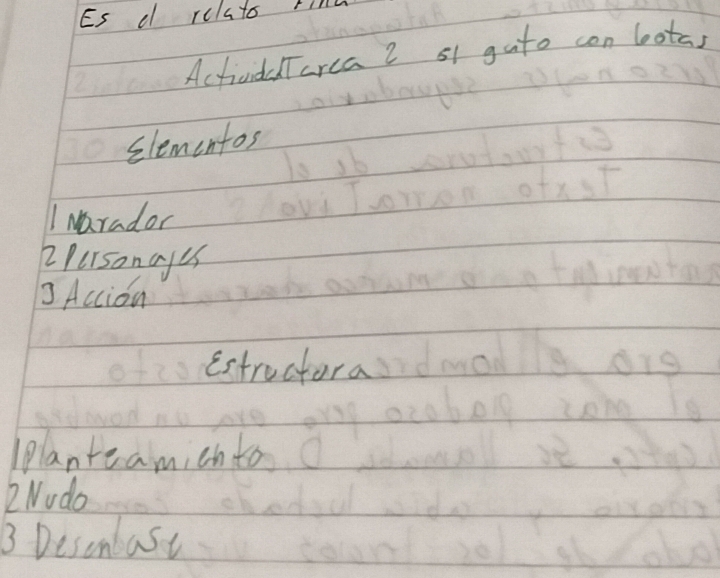 Es el relato
Actividad Tarea 2 el gato con botas
Elementos
1 Narador
2 Personajes
3 Acción
Estructura
1 Planteamiento
2 Nudo
3 Desenlase